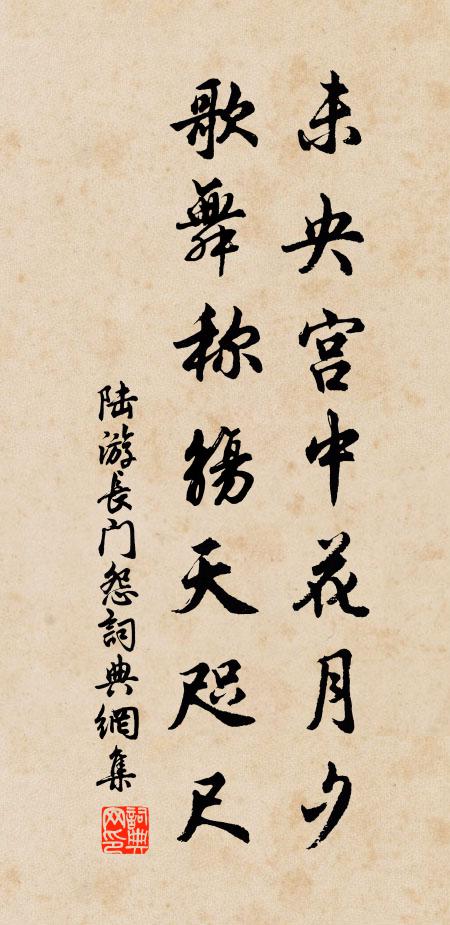 未央宫中花月夕
歌舞称觞天咫尺
陆游長门怨詞典網集
詞典网印